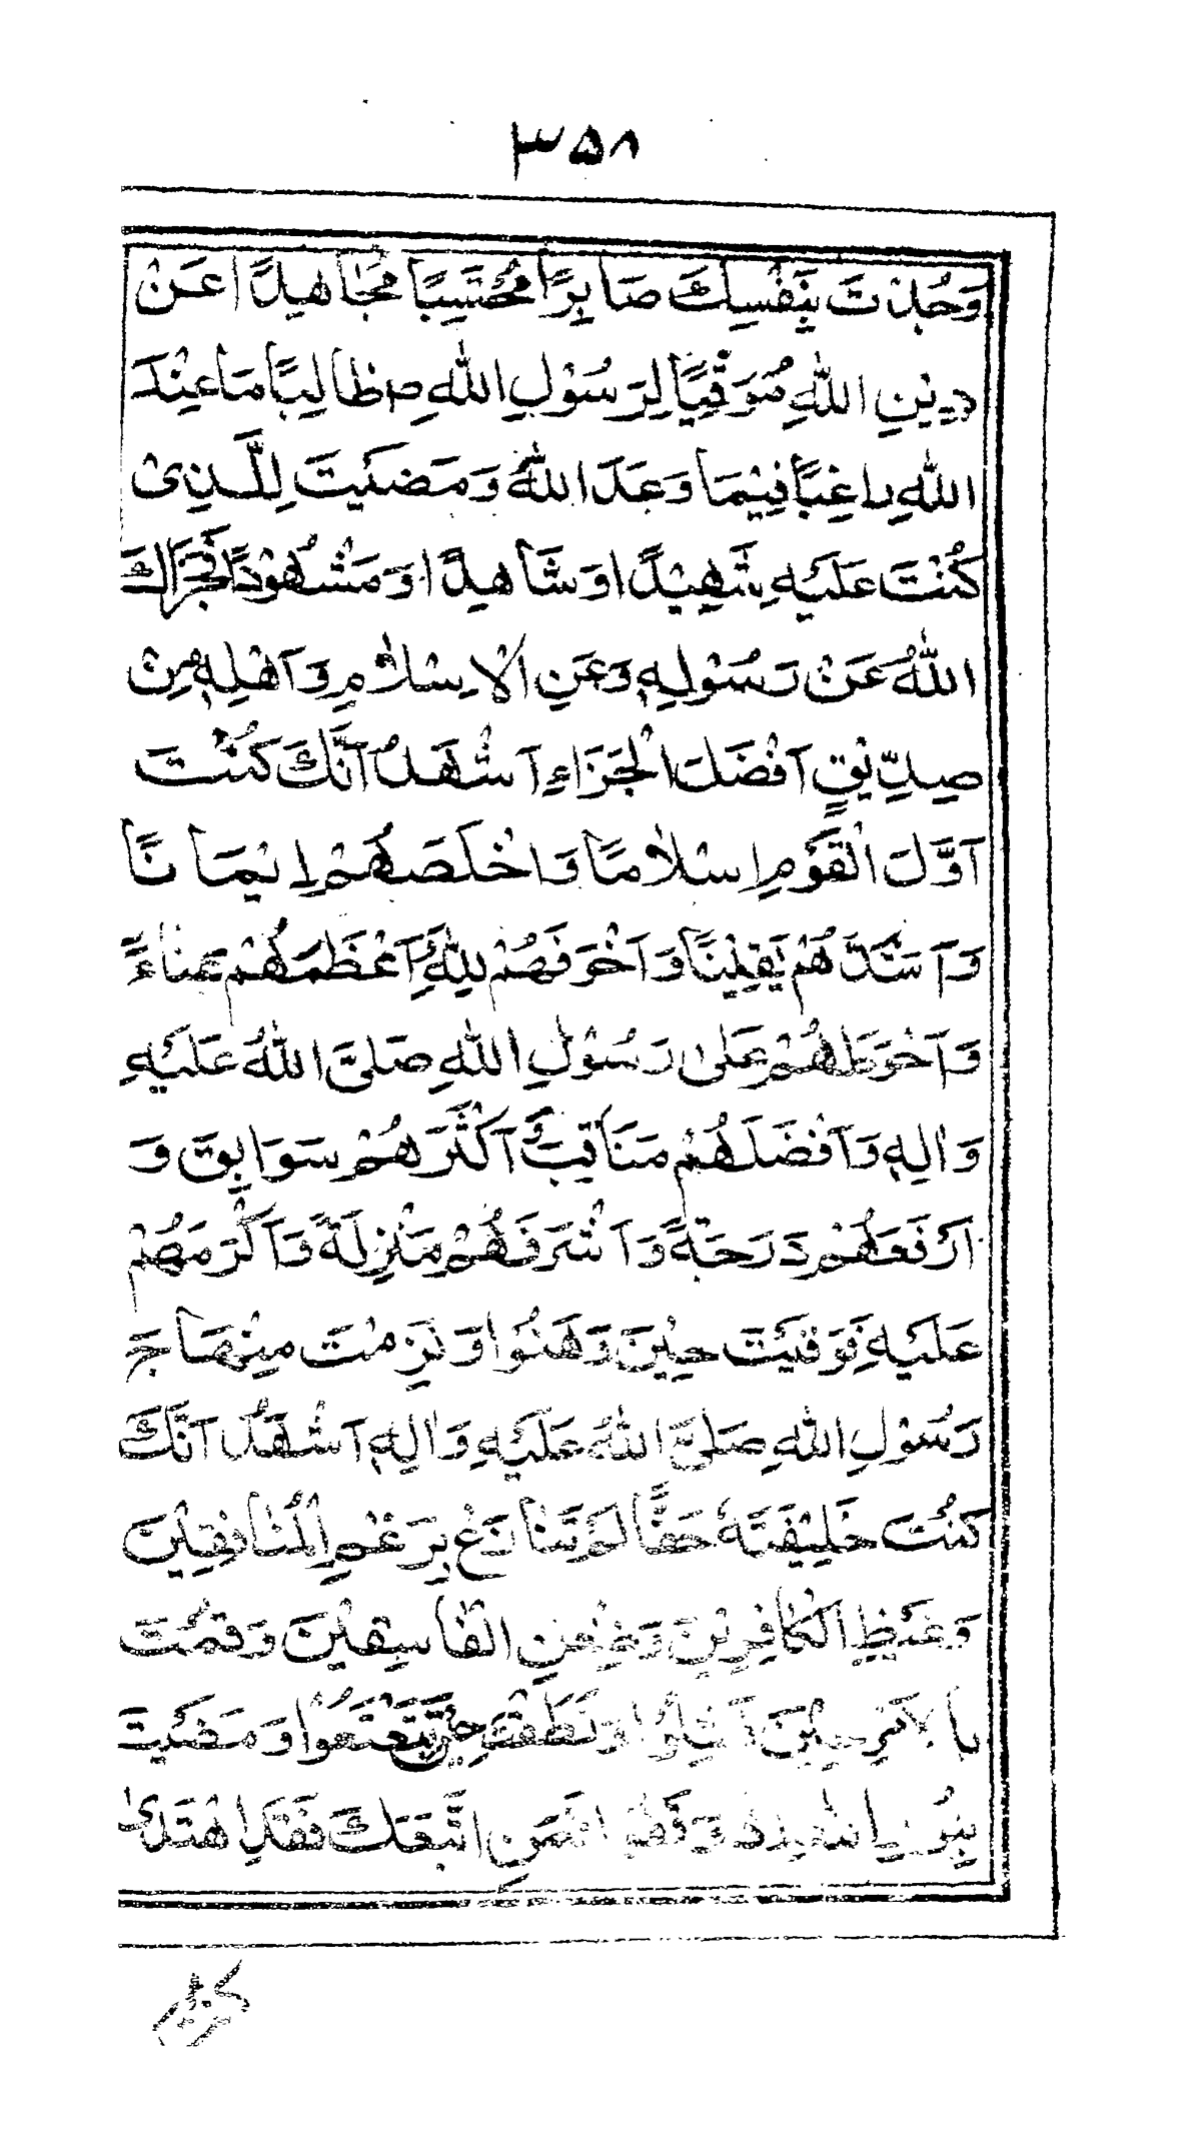 ۳۵۸
وَجُدْتَ بِنَفْسِكَ صَابِرًا مُحْتَسِبًا مُجَاهِدًا عَنْ
دِيْنِ اللّٰهِ مُوَقِّيًا لِرَسُوْلِ اللّٰهِ ص طَالِبًا مَا عِنْدَ
اللّٰهِ رَاغِبًا فِيْمَا وَعَدَ اللّٰهُ وَ مَضَيْتَ لِلَّذِىْ
كُنْتَ عَلَيْهِ شَهِيْدًا وَ شَاهِدًا وَ مَشْهُوْدًا فَجَزَاكَ
اللّٰهُ عَنْ رَسُوْلِهٖ وَ عَنِ الْاِسْلَامِ وَ اَهْلِهٖ مِنْ
صِدِّيْقٍ اَفْضَلَ الْجَزَاءِ اَشْهَدُ اَنَّكَ كُنْتَ
اَوَّلَ الْقَوْمِ اِسْلَامًا وَ اَخْلَصَهُمْ اِيْمَانًا
وَ اَشَدَّهُمْ يَقِيْنًا وَ اَخْوَفَهُمْ لِلّٰهِ وَ اَعْظَمَهُمْ عَنَاءً
وَ اَحْوَطَهُمْ عَلٰى رَسُوْلِ اللّٰهِ صَلَّى اللّٰهُ عَلَيْهِ
وَ اٰلِهٖ وَ اَفْضَلَهُمْ مَنَاقِبَ وَ اَكْثَرَهُمْ سَوَابِقَ وَ
اَرْفَعَهُمْ دَرَجَةً وَ اَشْرَفَهُمْ مَنْزِلَةً وَ اَكْرَمَهُمْ
عَلَيْهِ فَقَوِيْتَ حِيْنَ وَهَنُوْا وَ لَزِمْتَ مِنْهَاجَ
رَسُوْلِ اللّٰهِ صَلَّى اللّٰهُ عَلَيْهِ وَ اٰلِهٖ اَشْهَدُ اَنَّكَ
كُنْتَ خَلِيْفَتَهٗ حَقًّا لَمْ تُنَازَعْ بِرَغْمِ الْمُنَافِقِيْنَ
وَ غَيْظِ الْكَافِرِيْنَ وَ ضِغْنِ الْفَاسِقِيْنَ وَ قُمْتَ
بِالْاَمْرِ حِيْنَ فَشِلُوْا وَ نَطَقْتَ حِيْنَ تَتَعْتَعُوْا وَ مَضَيْتَ
بِنُوْرِ اللّٰهِ اِذْ وَقَفُوْا فَمَنِ اتَّبَعَكَ فَقَدِ اهْتَدٰى
كنت